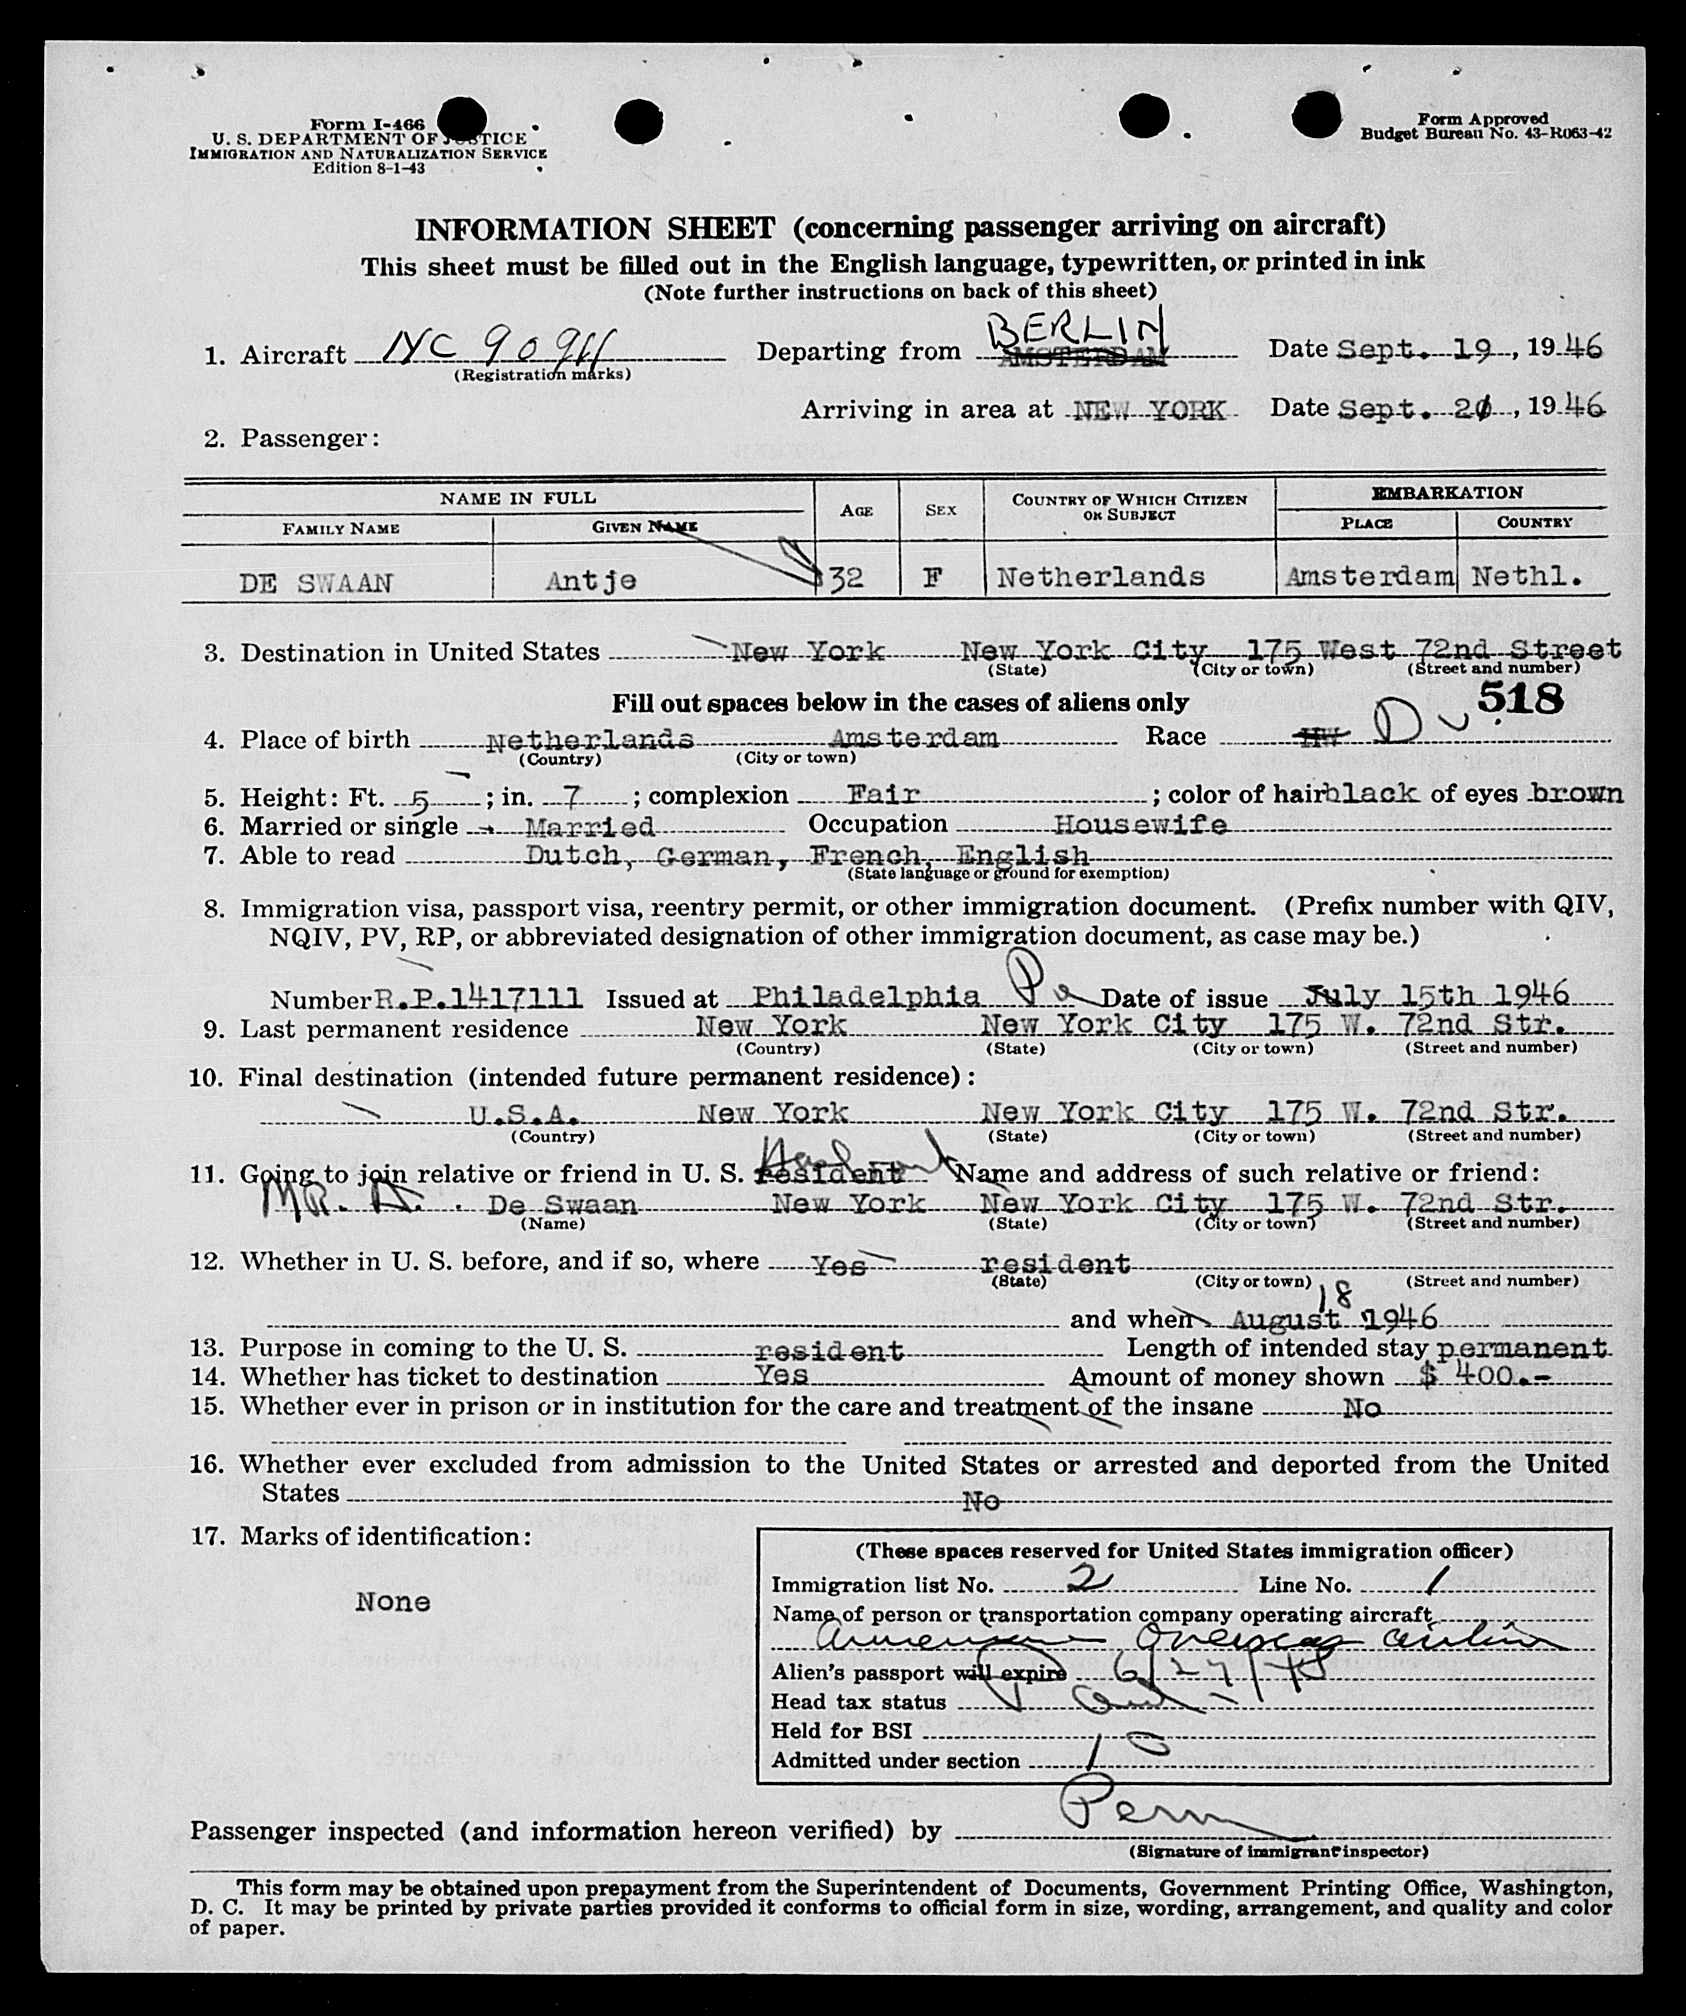 Form I-466
U. S. DEPARTMENT OF JUSTICE
IMMIGRATION AND NATURALIZATION SERVICE
Edition 8-1-43
Form Approved
Budget Bureau No. 43-R063-42
INFORMATION SHEET (concerning passenger arriving on aircraft)
This sheet must be filled out in the English language, typewritten, or printed in ink
(Note further instructions on back of this sheet)
BERLIN
1. Aircraft NC 90911 Departing from AMSTERDAM Date Sept. 19, 1946
(Registration marks)
Arriving in area at NEW YORK Date Sept. 20, 1946
2. Passenger:
NAME IN FULL AGE SEX COUNTRY OF WHICH CITIZEN OR SUBJECT EMBARKATION
FAMILY NAME GIVEN NAME PLACE COUNTRY
DE SWAAN Antje 32 F Netherlands Amsterdam Nethl.
3. Destination in United States New York New York City 175 West 72nd Street
(State) (City or town) (Street and number)
Fill out spaces below in the cases of aliens only 518
4. Place of birth Netherlands Amsterdam Race HW D
(Country) (City or town)
5. Height: Ft. 5; in. 7; complexion Fair; color of hair black of eyes brown
6. Married or single Married Occupation Housewife
7. Able to read Dutch, German, French, English
(State language or ground for exemption)
8. Immigration visa, passport visa, reentry permit, or other immigration document. (Prefix number with QIV,
NQIV, PV, RP, or abbreviated designation of other immigration document, as case may be.)
Number R.P.1417111 Issued at Philadelphia Pa Date of issue July 15th 1946
9. Last permanent residence New York New York City 175 W. 72nd Str.
(Country) (State) (City or town) (Street and number)
10. Final destination (intended future permanent residence):
U.S.A. New York New York City 175 W. 72nd Str.
(Country) (State) (City or town) (Street and number)
11. Going to join relative or friend in U. S. resident Husband Name and address of such relative or friend:
MR. A. De Swaan New York New York City 175 W. 72nd Str.
(Name) (State) (City or town) (Street and number)
12. Whether in U. S. before, and if so, where Yes resident
(State) (City or town) (Street and number)
and when August 18 1946
13. Purpose in coming to the U. S. resident Length of intended stay permanent
14. Whether has ticket to destination Yes Amount of money shown $ 400.-
15. Whether ever in prison or in institution for the care and treatment of the insane No
16. Whether ever excluded from admission to the United States or arrested and deported from the United
States No
17. Marks of identification:
None
(These spaces reserved for United States immigration officer)
Immigration list No. 2 Line No. 1
Name of person or transportation company operating aircraft
American Overseas Airlines
Alien's passport will expire 6/27/48
Head tax status
Held for BSI
Admitted under section 10
Perm
Passenger inspected (and information hereon verified) by
(Signature of immigrant inspector)
This form may be obtained upon prepayment from the Superintendent of Documents, Government Printing Office, Washington,
D. C. It may be printed by private parties provided it conforms to official form in size, wording, arrangement, and quality and color
of paper.